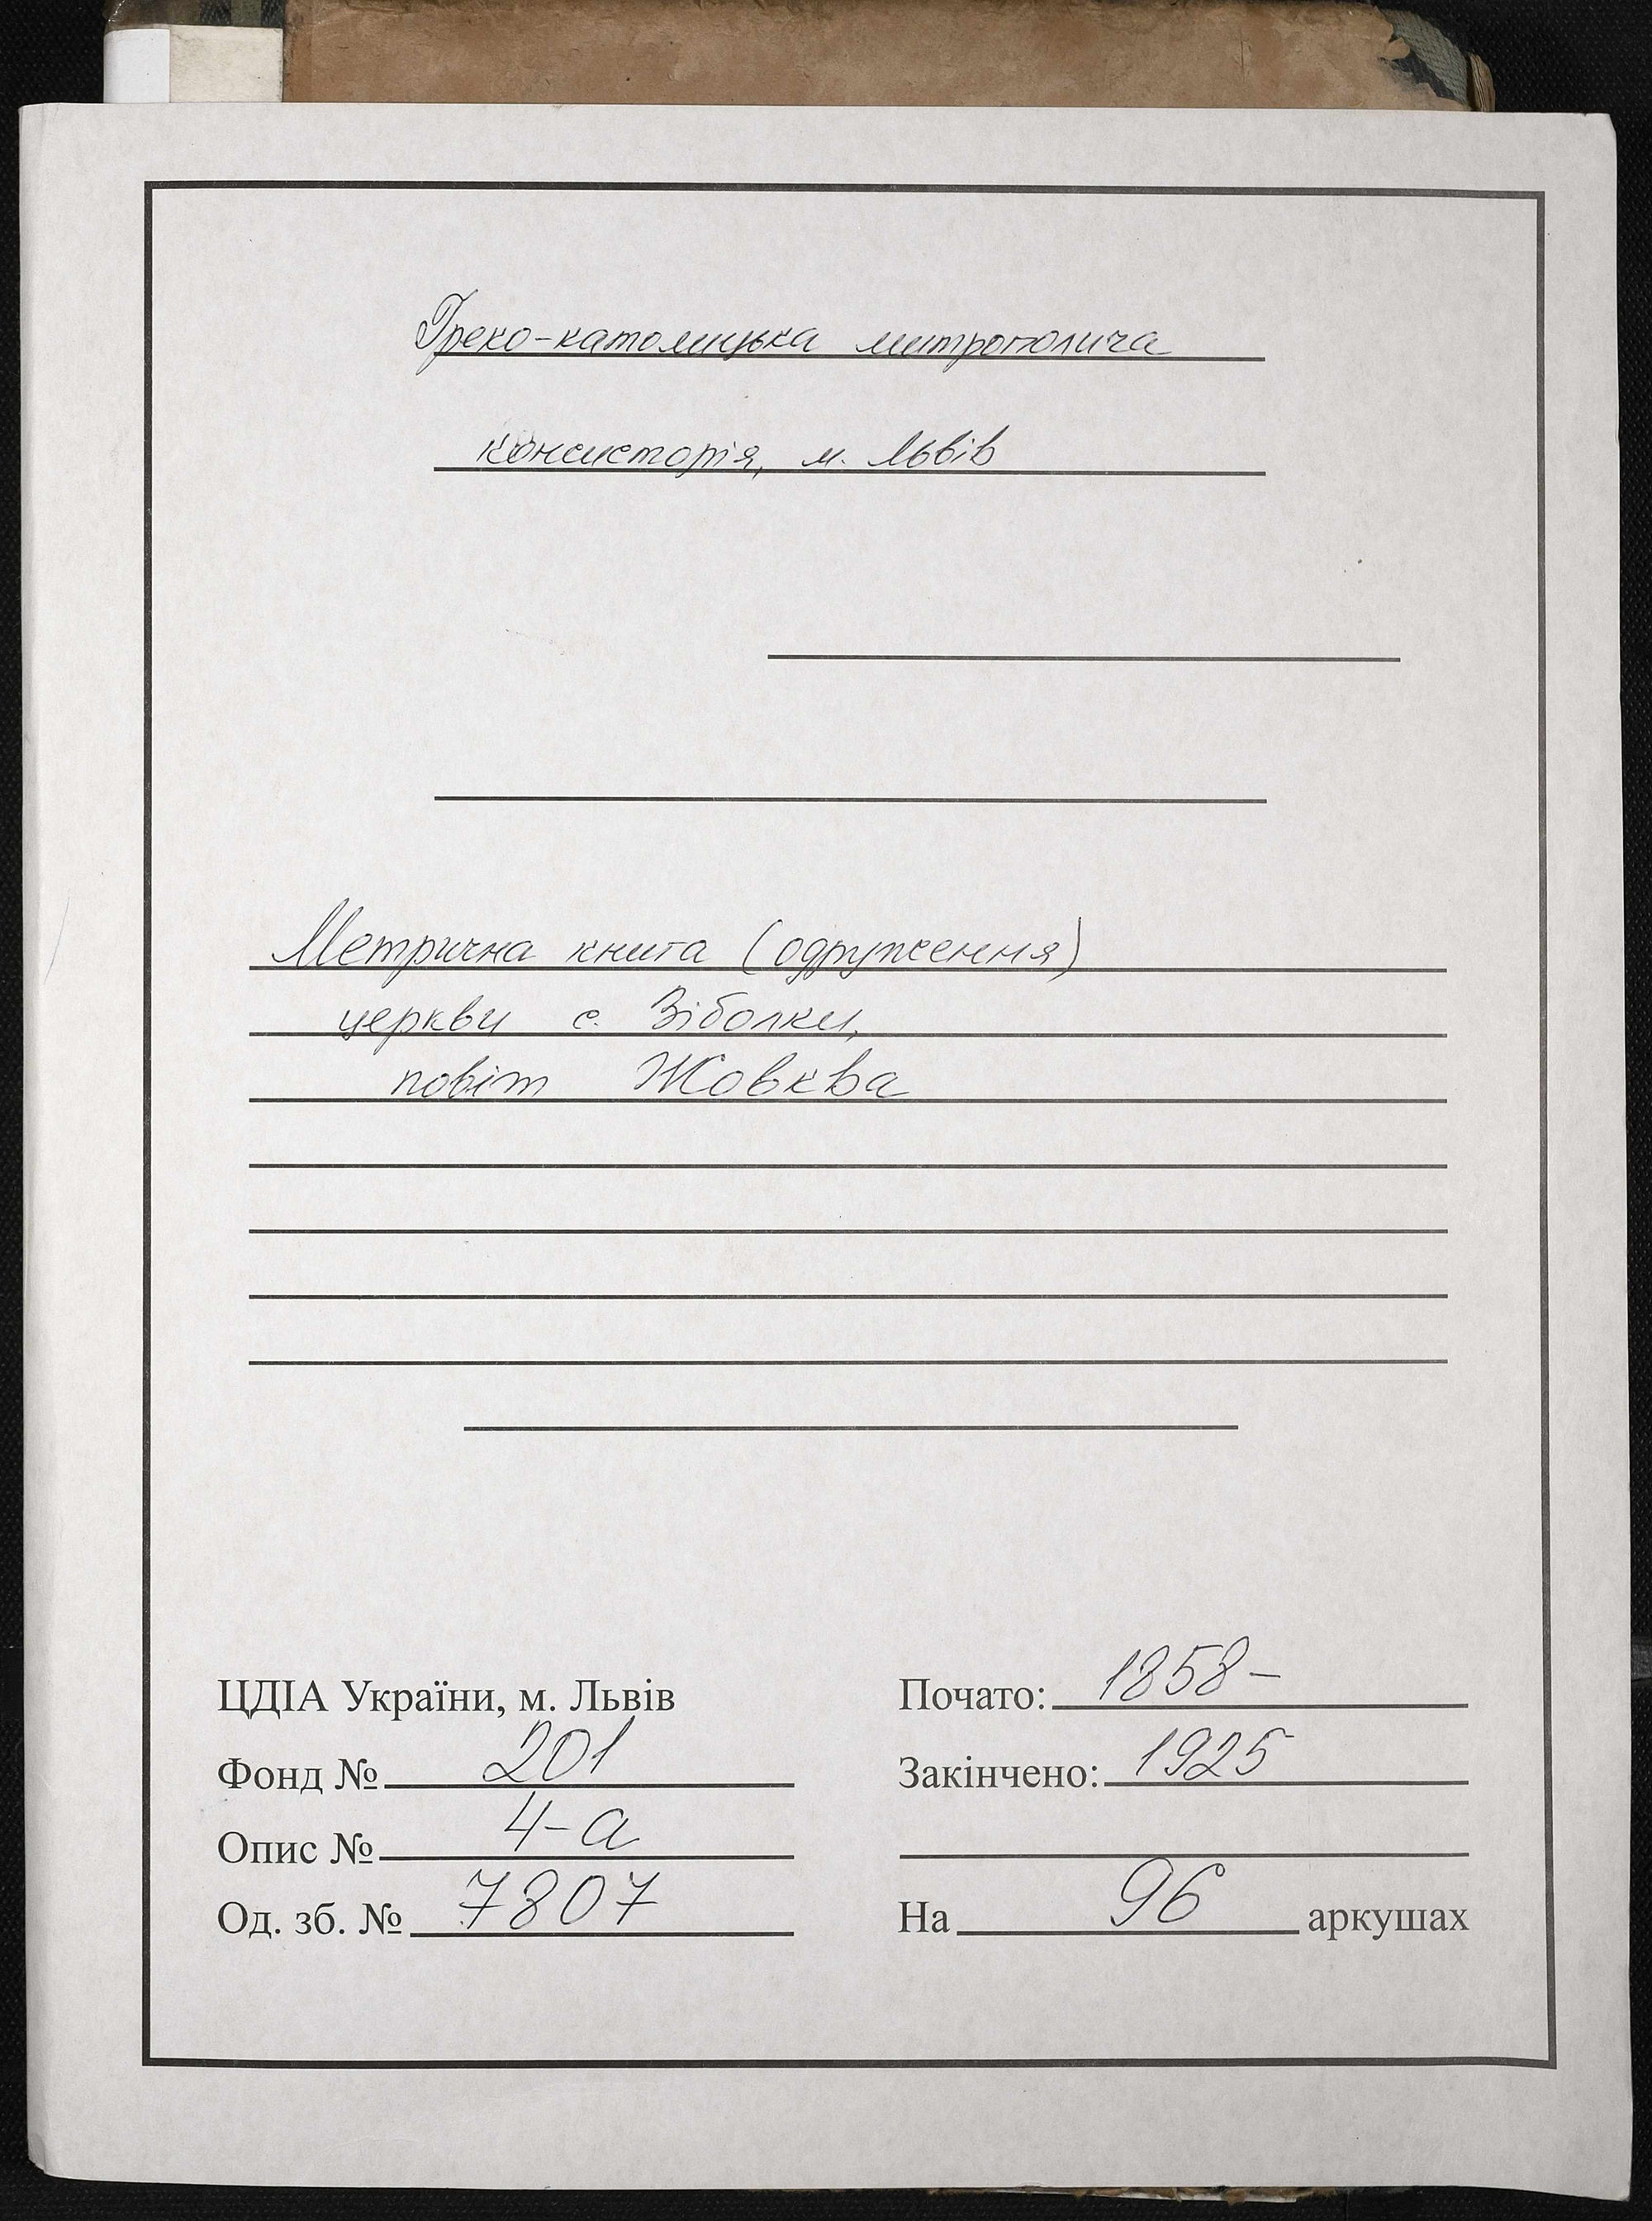 Греко-католицька митрополича
консисторія, м. Львів
Метрична книга (одруження)
церкви с. Зіболки,
повіт Жовква
ЦДІА України, м. Львів
Почато: 1858-
Фонд № 201
Закінчено: 1925
Опис № 4-а
Од. зб. № 7807
На 96 аркушах